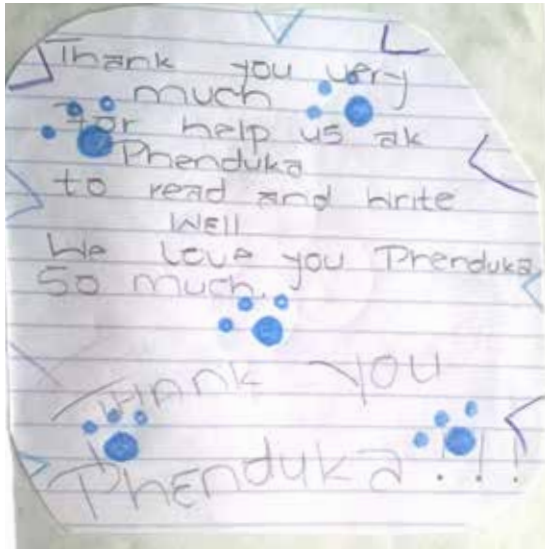 Thank you very
much
for help us ak
Phenduka
to read and write
WEll
We love you Phenduka
So much.
THANK YOU
PHENDUKA !!!